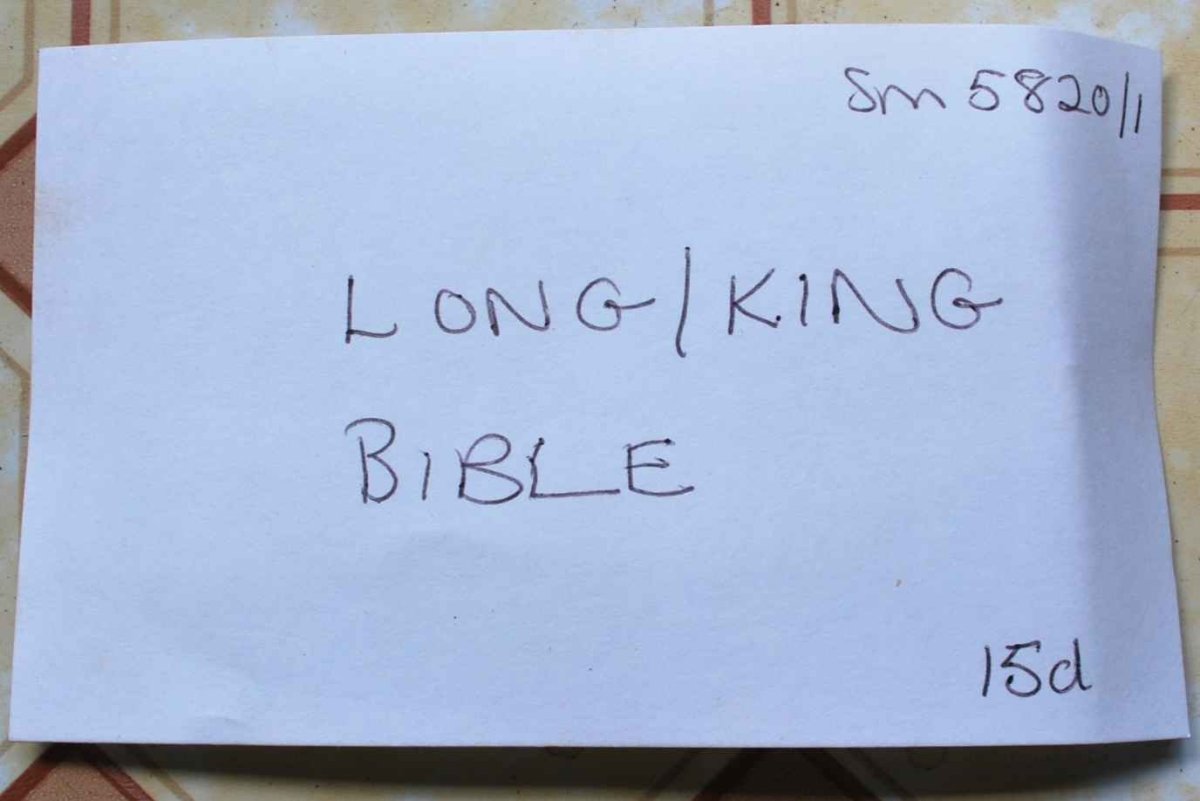 Sm 5820/1
LONG/KING
BIBLE
15d